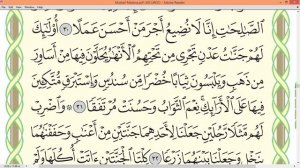 الصَّالِحَاتِ إِنَّا لَا نُضِيعُ أَجْرَ مَنْ أَحْسَنَ عَمَلًا ٣٠ أُولَٰئِكَ
لَهُمْ جَنَّاتُ عَدْنٍ تَجْرِي مِن تَحْتِهِمُ الْأَنْهَارُ يُحَلَّوْنَ فِيهَا مِنْ أَسَاوِرَ
مِن ذَهَبٍ وَيَلْبَسُونَ ثِيَابًا خُضْرًا مِّن سُندُسٍ وَإِسْتَبْرَقٍ مُّتَّكِئِينَ
فِيهَا عَلَى الْأَرَائِكِ نِعْمَ الثَّوَابُ وَحَسُنَتْ مُرْتَفَقًا ٣١ وَاضْرِبْ
لَهُم مَّثَلًا رَّجُلَيْنِ جَعَلْنَا لِأَحَدِهِمَا جَنَّتَيْنِ مِنْ أَعْنَابٍ وَحَفَفْنَاهُمَا
بِنَخْلٍ وَجَعَلْنَا بَيْنَهُمَا زَرْعًا ٣٢ كِلْتَا الْجَنَّتَيْنِ آتَتْ أُكُلَهَا وَلَمْ